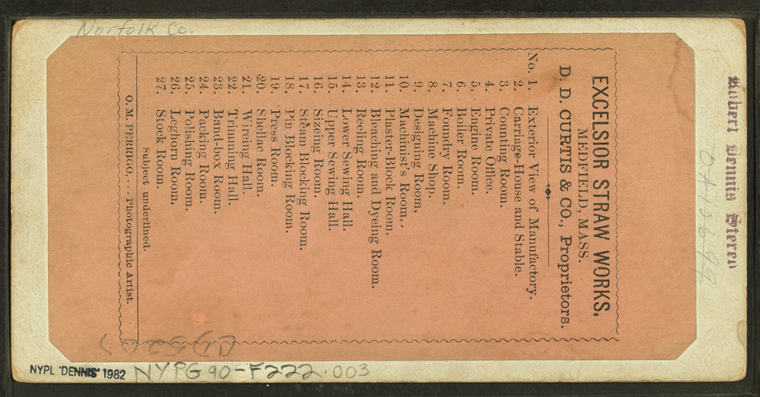 Norfolk Co.
EXCELSIOR STRAW WORKS,
MEDFIELD, MASS.
D. D. CURTIS & CO., Proprietors.
No. 1. Exterior View of Manufactory.
2. Carriage-House and Stable.
3. Counting Room.
4. Private Office.
5. Engine Room.
6. Boiler Room.
7. Foundry Room.
8. Machine Shop.
9. Designing Room,
10. Machinist's Room.
11. Plaster-Block Room.
12. Bleaching and Dyeing Room.
13. Reeling Room.
14. Lower Sewing Hall.
15. Upper Sewing Hall.
16. Sizeing Room.
17. Steam Blocking Room.
18. Pin Blocking Room.
19. Press Room.
20. Shellac Room.
21. Wireing Hall.
22. Trimming Hall.
23. Band-box Room.
24. Packing Room.
25. Polishing Room.
26. Leghorn Room.
27. Stock Room.
Subject underlined.
O. M. PERRIGO, . . . Photographic Artist.
Robert Dennis Stereo
NYPL 'DENNIS' 1982 NYPG 90-F222.003